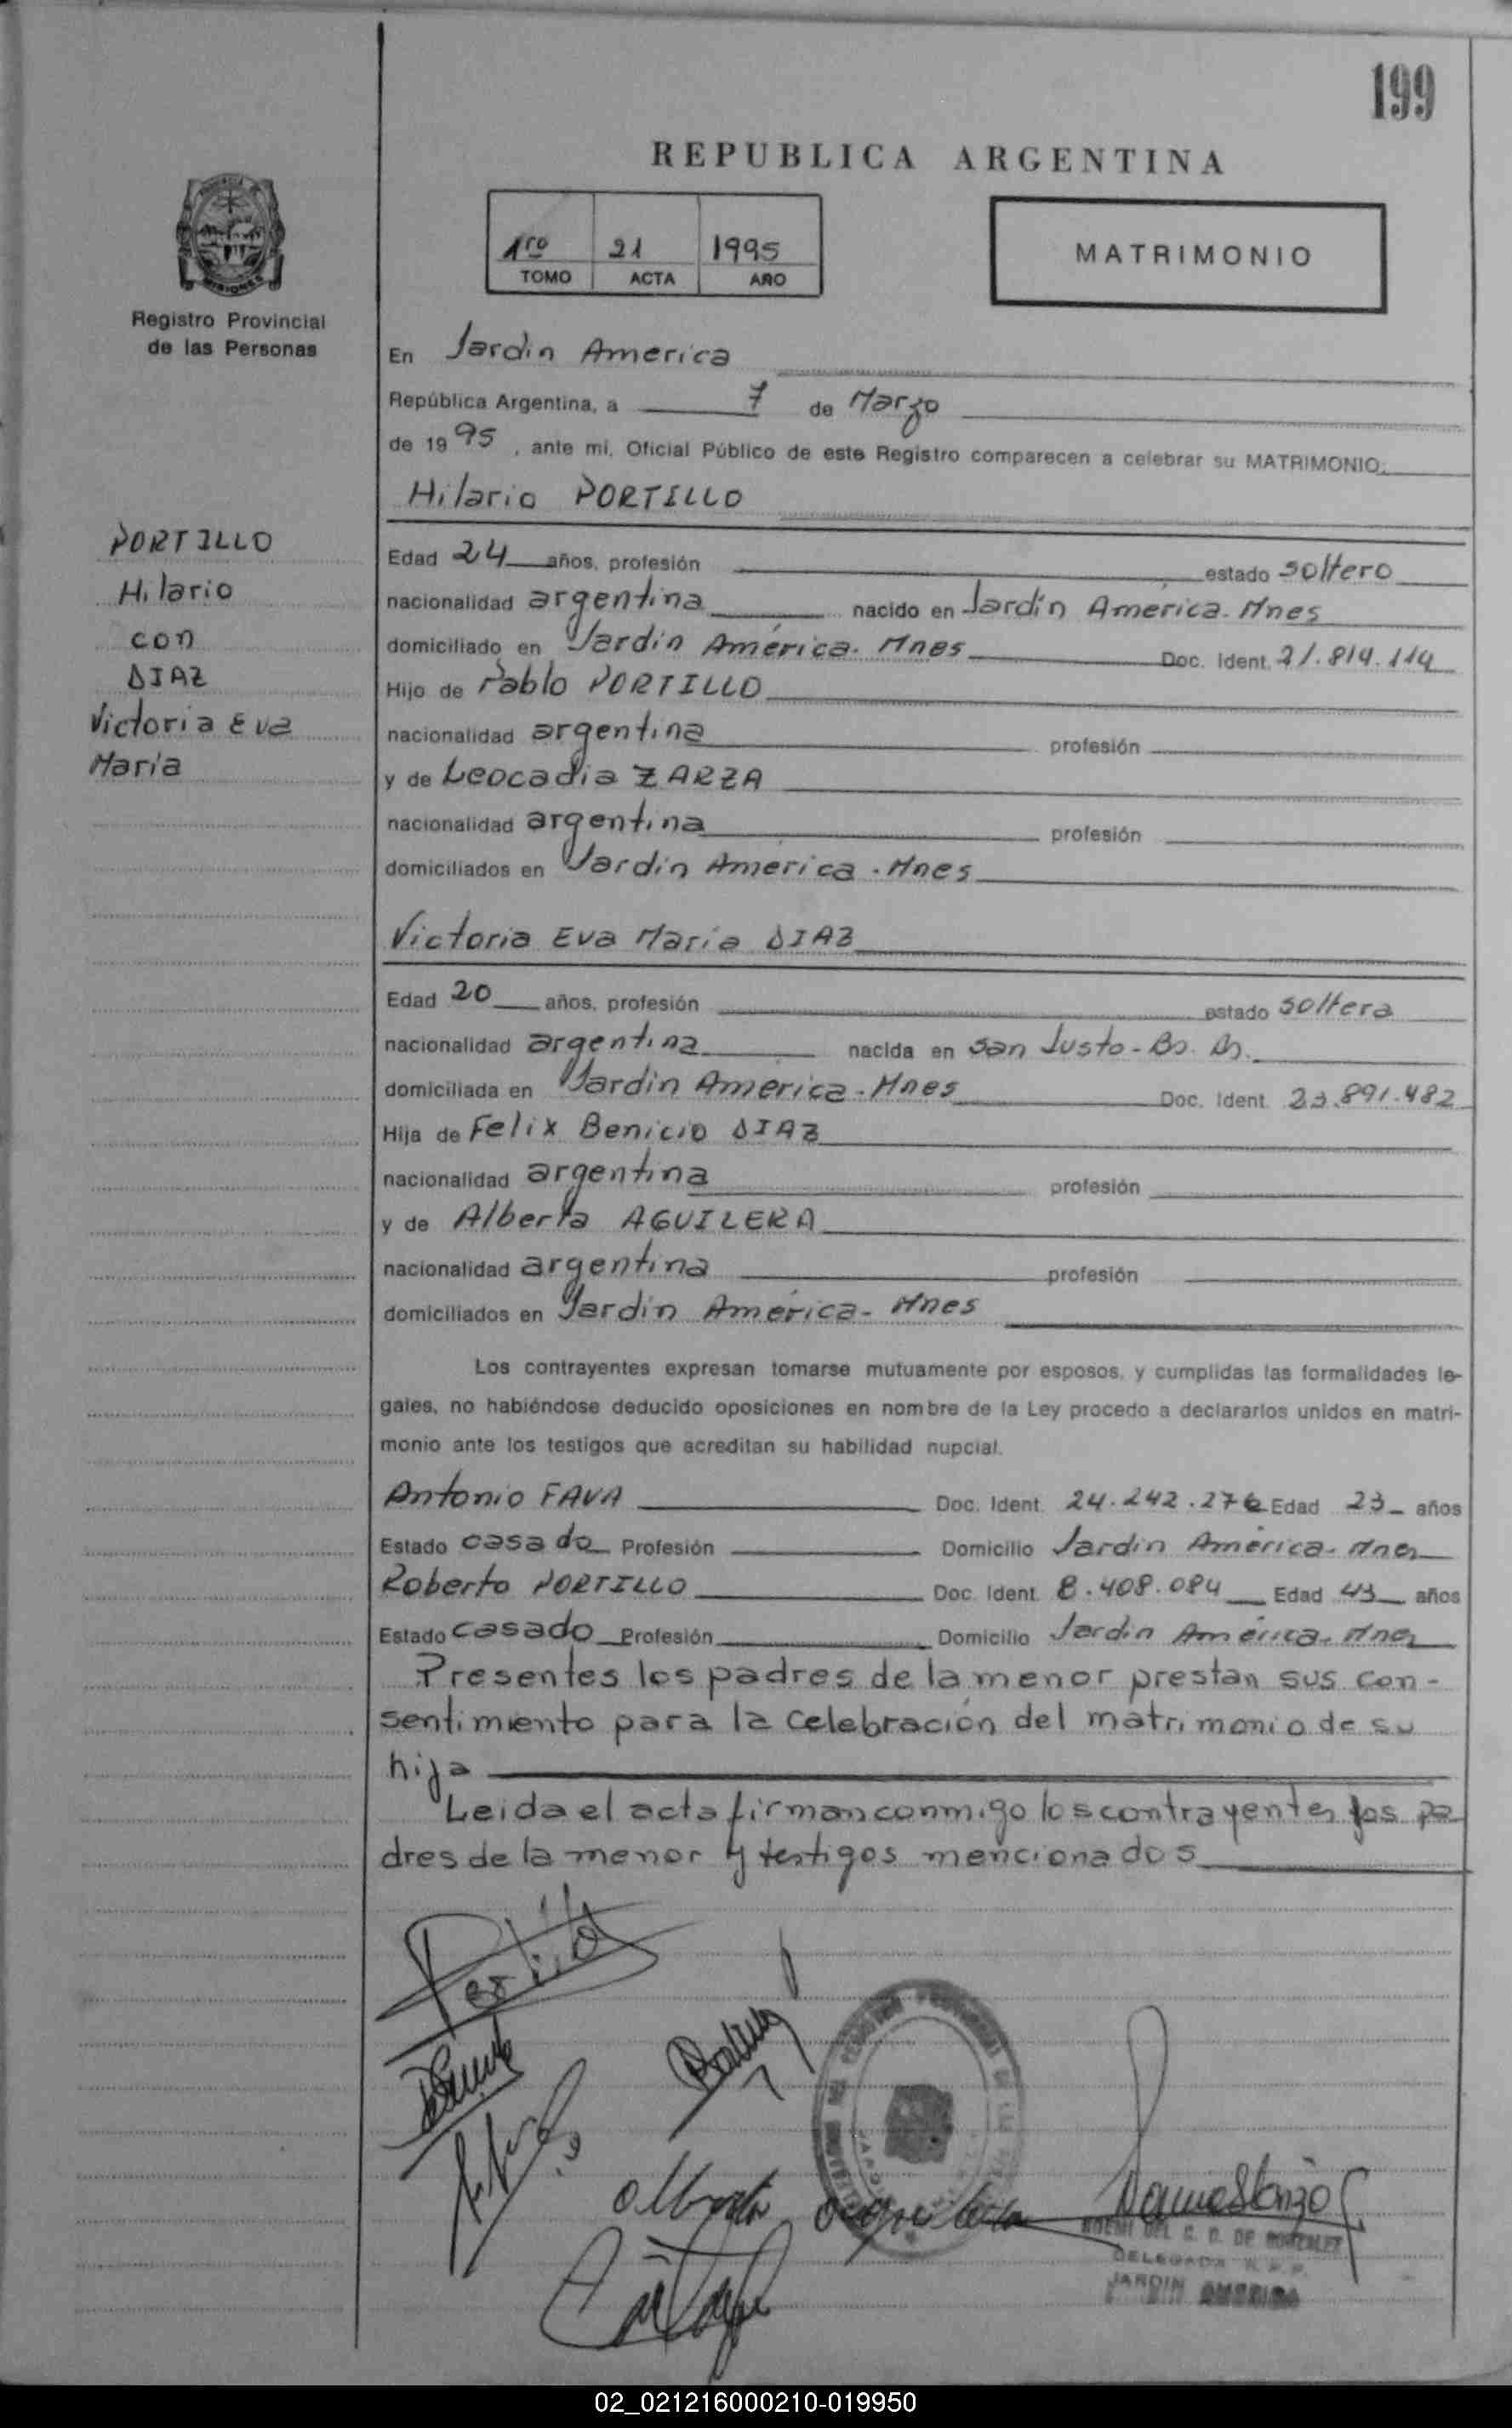 199
REPUBLICA ARGENTINA
1ro 21 1995
TOMO ACTA AÑO
MATRIMONIO
Registro Provincial
de las Personas
En Jardin America
República Argentina, a 7 de Marzo
de 1995, ante mi, Oficial Público de este Registro comparecen a celebrar su MATRIMONIO:
Hilario PORTILLO
PORTILLO
Hilario
con
DIAZ
Victoria Eva
Maria
Edad 24 años, profesión estado soltero
nacionalidad argentina nacido en Jardín América. Mnes
domiciliado en Jardín América. Mnes Doc. Ident. 21.814.114
Hijo de Pablo PORTILLO
nacionalidad argentina profesión
y de Leocadia ZARZA
nacionalidad argentina profesión
domiciliados en Jardin América. Mnes
Victoria Eva Maria DIAZ
Edad 20 años, profesión estado soltera
nacionalidad argentina nacida en San Justo - Bs. As.
domiciliada en Jardin América. Mnes Doc. Ident. 23.891.482
Hija de Felix Benicio DIAZ
nacionalidad argentina profesión
y de Alberta AGUILERA
nacionalidad argentina profesión
domiciliados en Jardin América- Mnes
Los contrayentes expresan tomarse mutuamente por esposos, y cumplidas las formalidades le-
gales, no habiéndose deducido oposiciones en nombre de la Ley procedo a declararlos unidos en matri-
monio ante los testigos que acreditan su habilidad nupcial.
Antonio FAVA Doc. Ident. 24.242.276 Edad 23 años
Estado casado Profesión Domicilio Jardin América- Mnes
Roberto PORTILLO Doc. Ident. 8.408.084 Edad 43 años
Estado casado Profesión Domicilio Jardin América- Mnes
Presentes los padres de la menor prestan sus con-
sentimiento para la celebración del matrimonio de su
hija
Leida el acta firman conmigo los contrayentes los pa
dres de la menor y testigos mencionados
Portillo
Alberta Aguilera
NOEMI DEL C. D. DE GONZALEZ
DELEGADA R. P. P.
JARDIN AMERICA
02_021216000210-019950